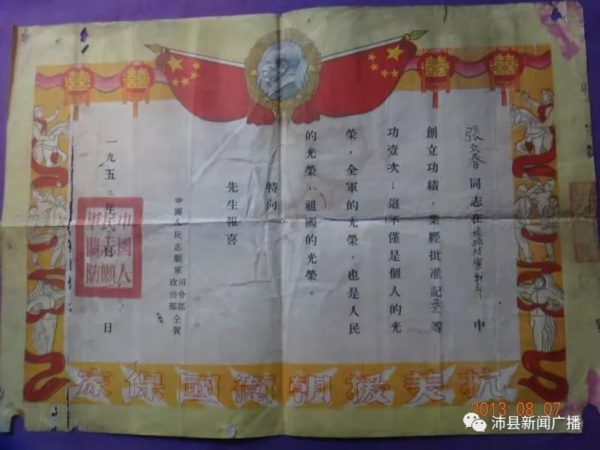 張立春同志在
中
創立功績，業經批准記三等
功壹次；這不僅是個人的光
榮，全軍的光榮，也是人民
的光榮，祖國的光榮。
特向
先生報喜
中國人民志願軍
司令部
政治部
仝賀
一九五三年
日
抗美援朝衛國保家
2013 08 07
沛县新闻广播